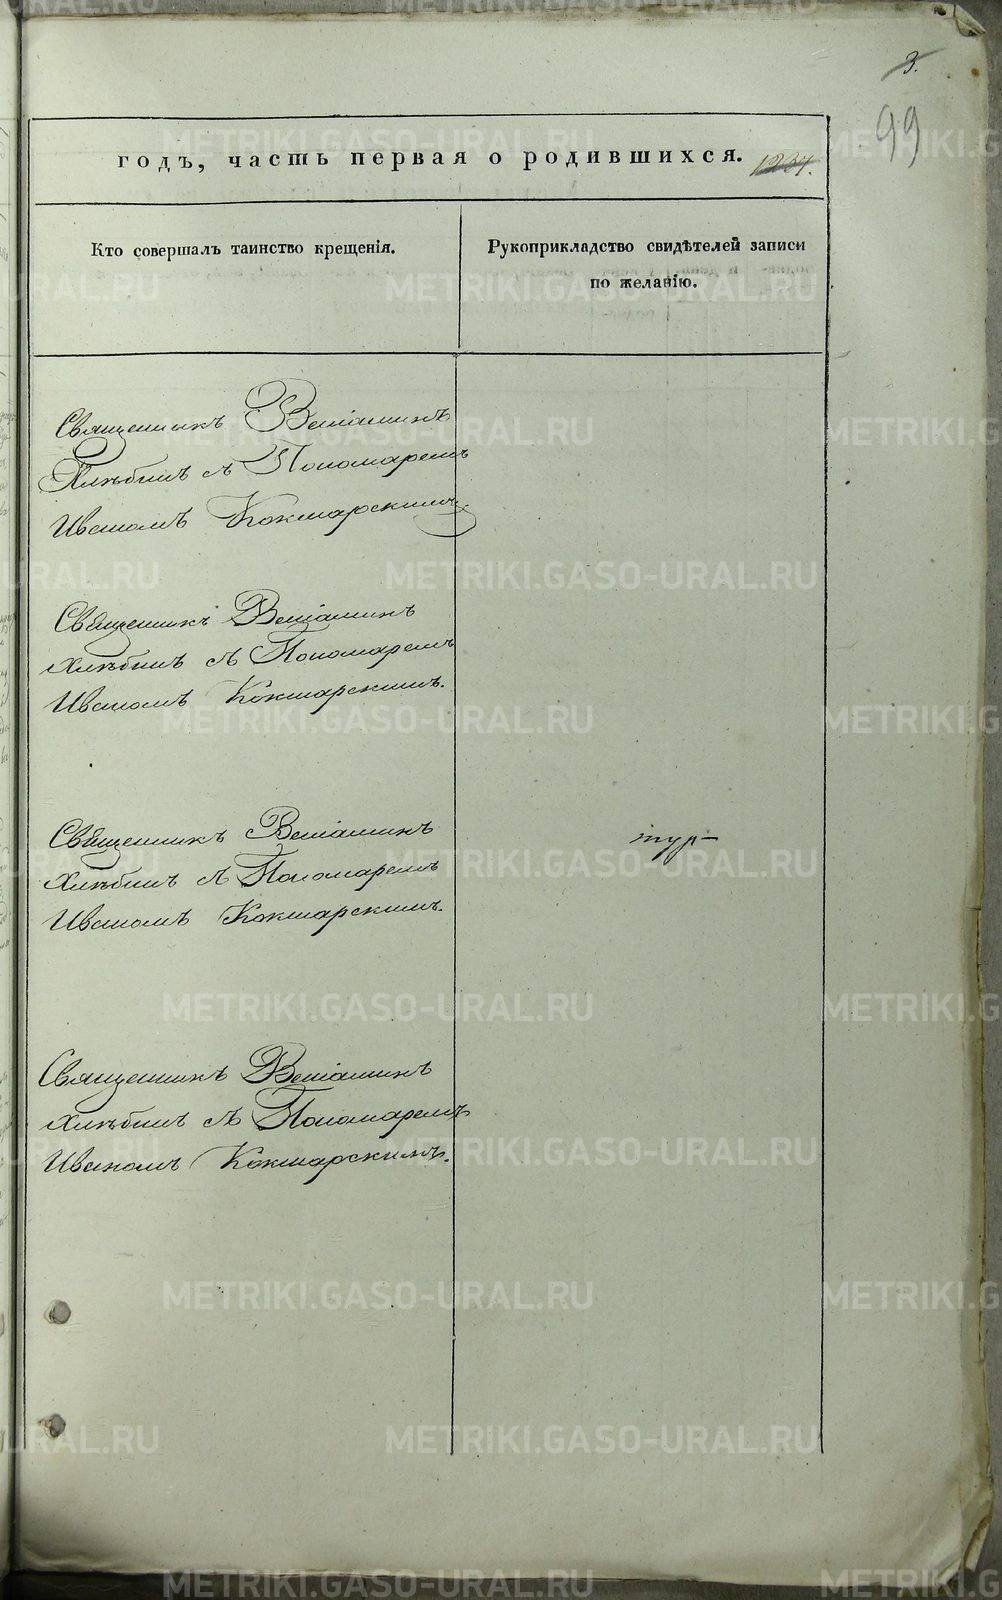 3.
99
годъ, часть первая о родившихся. 1234.
Кто совершалъ таинство крещенія.
Рукоприкладство свидѣтелей записи
по желанію.
Священникъ Веніаминъ
Хлѣбинъ съ Пономаремъ
Иваномъ Кокшарскимъ
Священникъ Веніаминъ
Хлѣбинъ съ Пономаремъ
Иваномъ Кокшарскимъ.
Священникъ Веніаминъ
Хлѣбинъ съ Пономаремъ
Иваномъ Кокшарскимъ.
тур
Священникъ Веніаминъ
Хлѣбинъ съ Пономаремъ
Иваномъ Кокшарскимъ.
METRIKI.GASO-URAL.RU